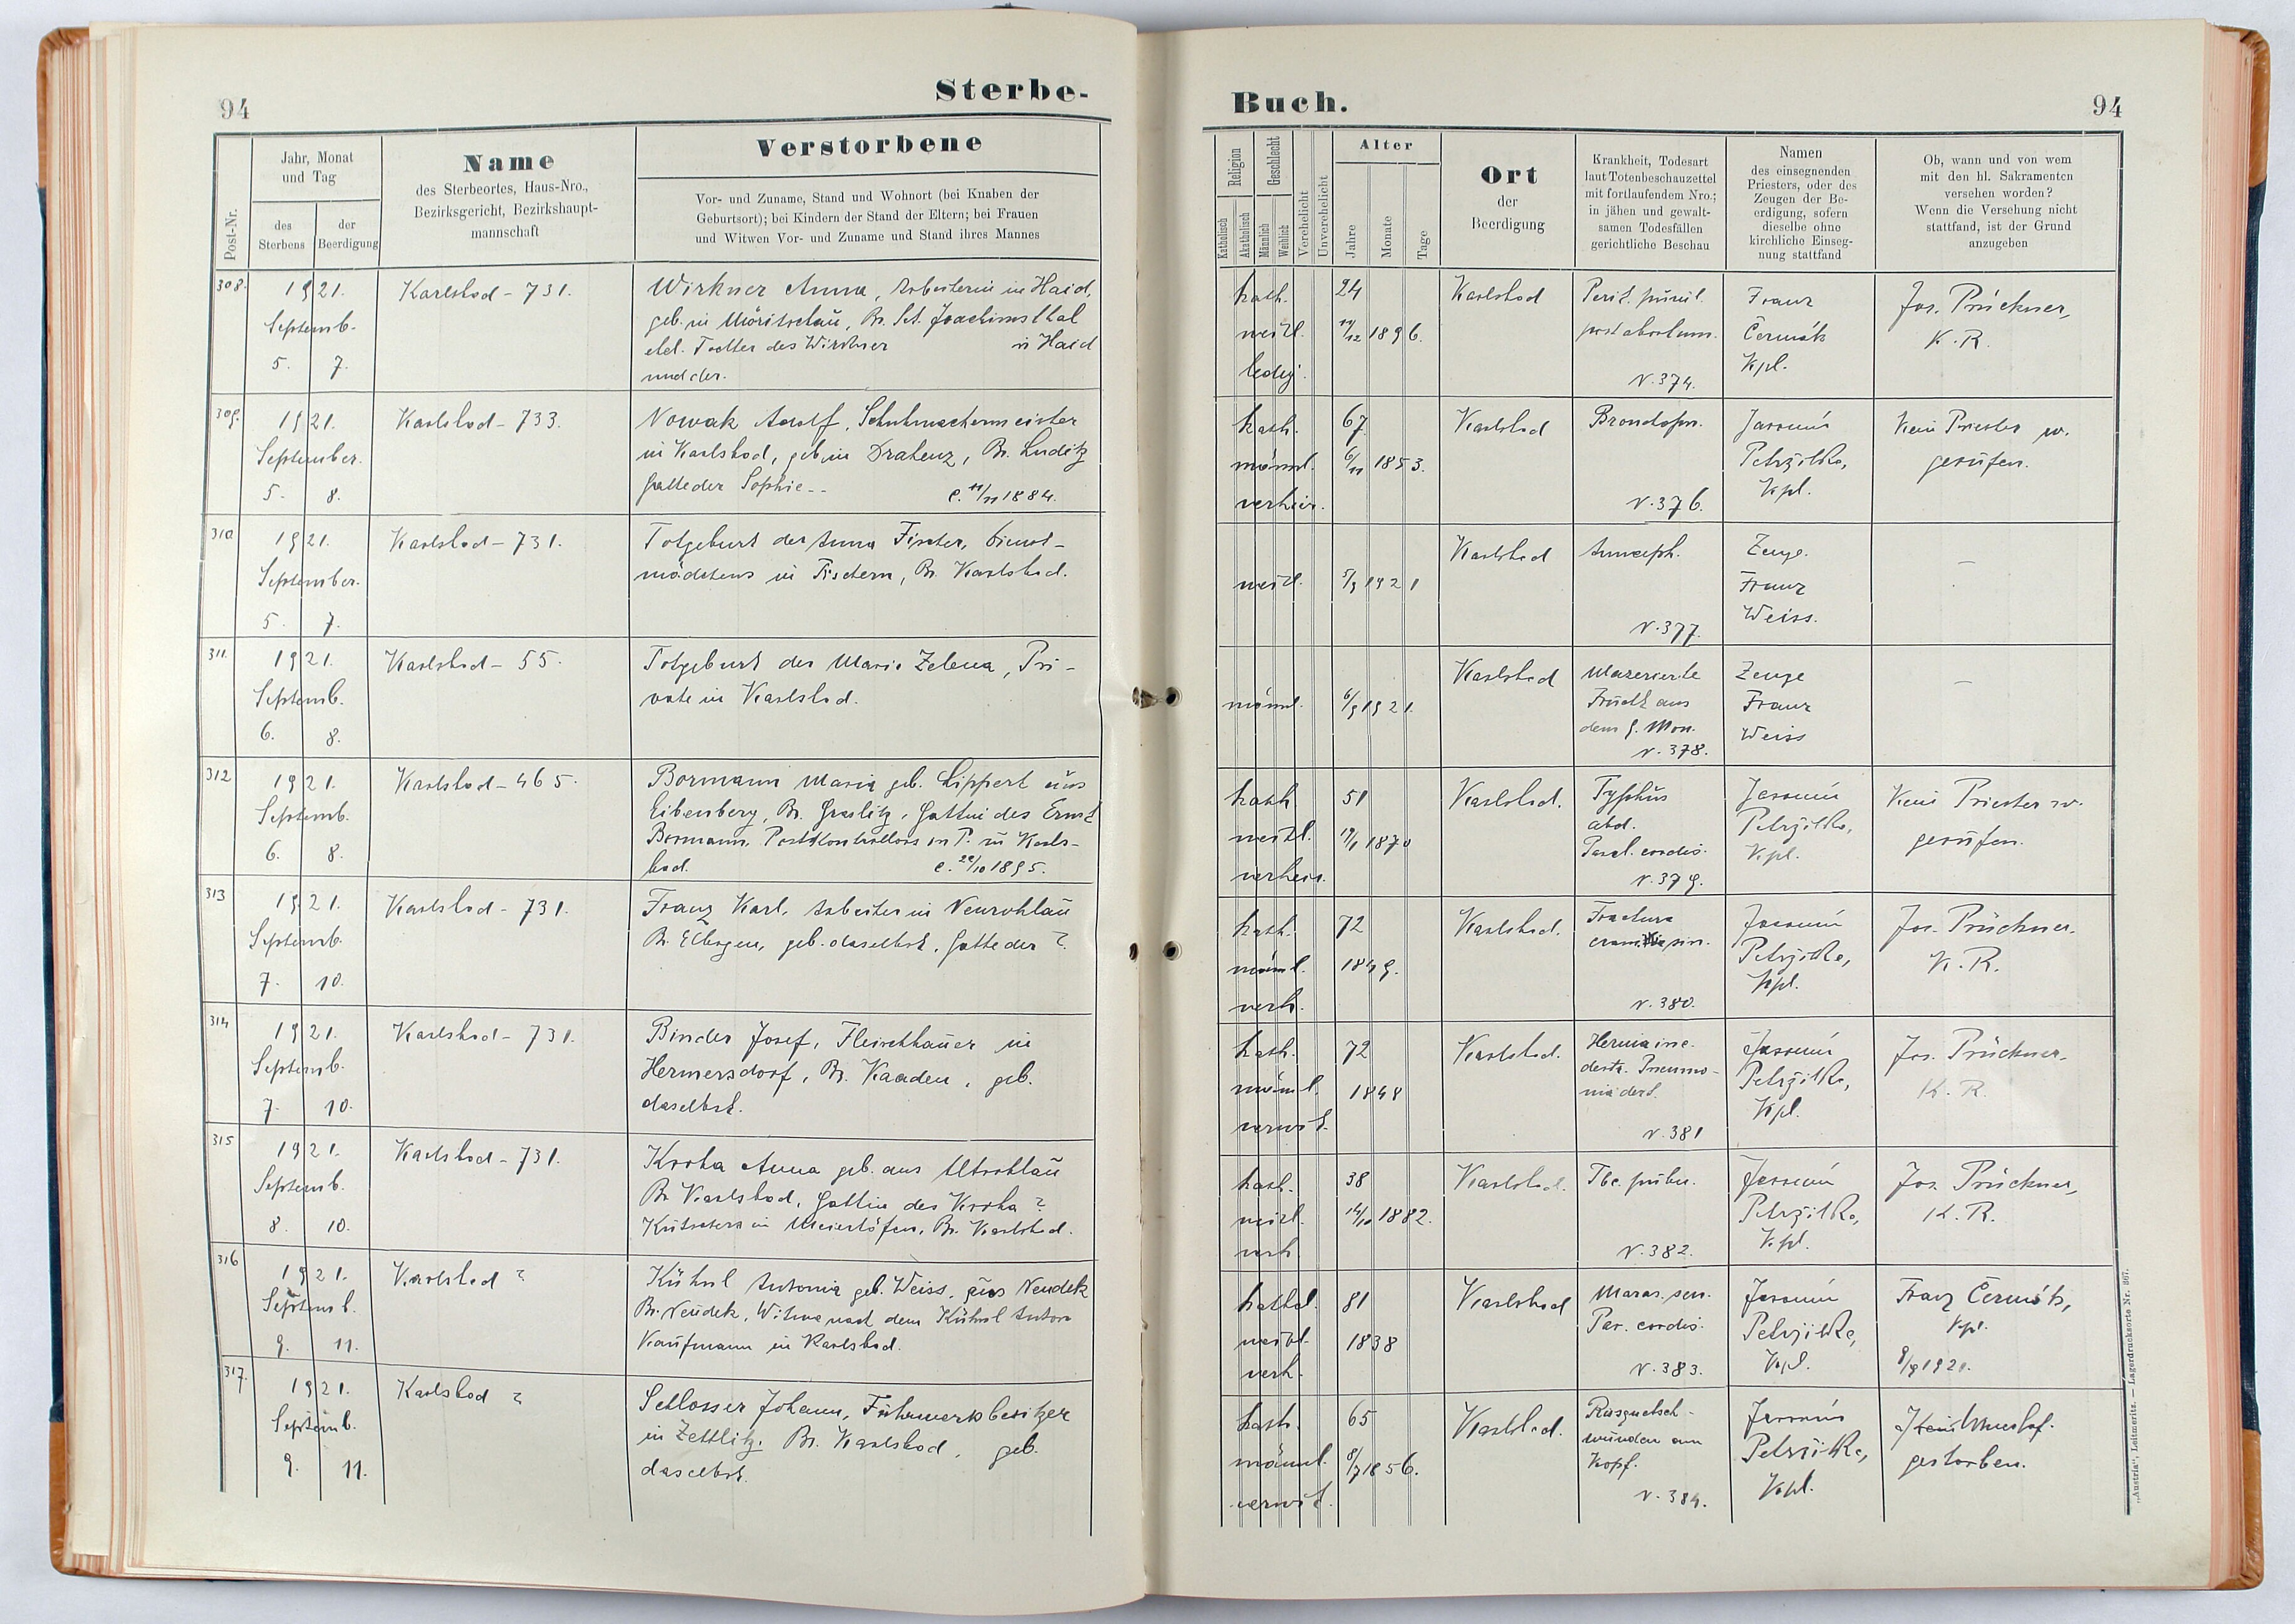 94
Sterbe-
Post-Nr.
Jahr, Monat
und Tag
des
Sterbens
der
Beerdigung
Name
des Sterbeortes, Haus-Nro.,
Bezirksgericht, Bezirkshaupt-
mannschaft
Verstorbene
Vor- und Zuname, Stand und Wohnort (bei Knaben der
Geburtsort); bei Kindern der Stand der Eltern; bei Frauen
und Witwen Vor- und Zuname und Stand ihres Mannes
308.
1921.
Septemb.
5. 7.
Karlsbad - 731.
Wirkner Anna, Arbeiterin in Haid,
geb. in Möritschau, Br. St. Joachimsthal
ehel. Tochter des Wirkner in Haid
und der.
309.
1921.
September.
5. 8.
Karlsbad - 733.
Nowak Adolf, Schuhmachermeister
in Karlsbad, geb. in Drahenz, Br. Luditz
Gatte der Sophie --
C. 11/11 1884.
310
1921.
September.
5. 7.
Karlsbad - 731.
Totgeburt der Anna Fischer, Dienst-
mädchens in Fischern, Br. Karlsbad.
311.
1921.
Septemb.
6. 8.
Karlsbad - 55.
Totgeburt der Marie Zelena, Pri-
vate in Karlsbad.
312
1921.
Septemb.
6. 8.
Karlsbad - 465.
Bormann Maria geb. Lippert aus
Eibenberg, Br. Graslitz, Gattin des Ernst
Bormann, Postkontrollors in P. in Karls-
bad.
C. 22/10 1895.
313
1921.
Septemb.
7. 10.
Karlsbad - 731.
Franz Karl, Arbeiter in Neurohlau
Br. Elbogen, geb. daselbst, Gatte der ?
314
1921.
Septemb.
7. 10.
Karlsbad - 731.
Binder Josef, Fleischhauer in
Hermersdorf, Br. Kaaden, geb.
daselbst.
315
1921.
Septemb.
8. 10.
Karlsbad - 731.
Kroha Anna geb. aus Altrohlau
Br. Karlsbad, Gattin des Kroha ?
Kutschers in Meierhöfen, Br. Karlsbad.
316
1921.
Septemb.
9. 11.
Karlsbad ?
Kühnl Antonia geb. Weiss, aus Neudek
Br. Neudek, Witwe nach dem Kühnl Anton
Kaufmann in Karlsbad.
317.
1921.
Septemb.
9. 11.
Karlsbad ?
Schlosser Johann, Fuhrwerksbesitzer
in Zettlitz, Br. Karlsbad, geb.
daselbst.
Buch.
94
Religion
Katholisch
Akatholisch
Geschlecht
Männlich
Weiblich
Verehelicht
Unverehelicht
Alter
Jahre
Monate
Tage
Ort
der
Beerdigung
Krankheit, Todesart
laut Totenbeschauzettel
mit fortlaufendem Nro.;
in jähen und gewalt-
samen Todesfällen
gerichtliche Beschau
Namen
des einsegnenden
Priesters, oder des
Zeugen der Be-
erdigung, sofern
dieselbe ohne
kirchliche Einseg-
nung stattfand
Ob, wann und von wem
mit den hl. Sakramenten
versehen worden?
Wenn die Versehung nicht
stattfand, ist der Grund
anzugeben
kath.
weibl.
ledig.
24
1896.
Karlsbad
post abortum.
N. 374.
Franz
Čermák
Kpl.
Jos. Prückner,
K. R.
kath.
männl.
verheir.
67
6/11 1853.
Karlsbad
N. 376.
Petrželka,
Kpl.
Kein Priester w.
gerufen.
weibl.
5/9 1921
Karlsbad
N. 377.
Zeuge.
Franz
Weiss.
-
männl.
6/9 1921.
Karlsbad
Mazerierte
Frucht aus
dem 9. Mon.
N. 378.
Zeuge
Franz
Weiss
-
kath.
weibl.
verheir.
51
1870
Karlsbad.
Typhus
abd.
Paral. cordis.
N. 379.
Petrželka,
Kpl.
Kein Priester w.
gerufen.
kath.
männl.
verh.
72
1849.
Karlsbad.
Fractura
N. 380.
Petrželka,
Kpl.
Jos. Prückner.
K. R.
kath.
männl.
verwit.
72
1848
Karlsbad.
Hernia inc.
dextr. Pneumo-
nia dext.
N. 381
Petrželka,
Kpl.
Jos. Prückner.
K. R.
kath.
weibl.
verh.
38
14/10 1882.
Karlsbad.
Tbc. pulm.
N. 382.
Petrželka,
Kpl.
Jos. Prückner,
K. R.
kathol.
weibl.
verh.
81
1838
Karlsbad
Maras. sen.
Par. cordis.
N. 383.
Petrželka,
Kpl.
Franz Čermák,
Kpl.
9/9 1921.
kath.
männl.
verwit.
65
8/7 1856.
Karlsbad.
Rissquetsch-
wunden am
Kopf.
N. 384.
Petrželka,
Kpl.
gestorben.
„Austria“, Leitmeritz. — Lagerdrucksorte Nr. 867.